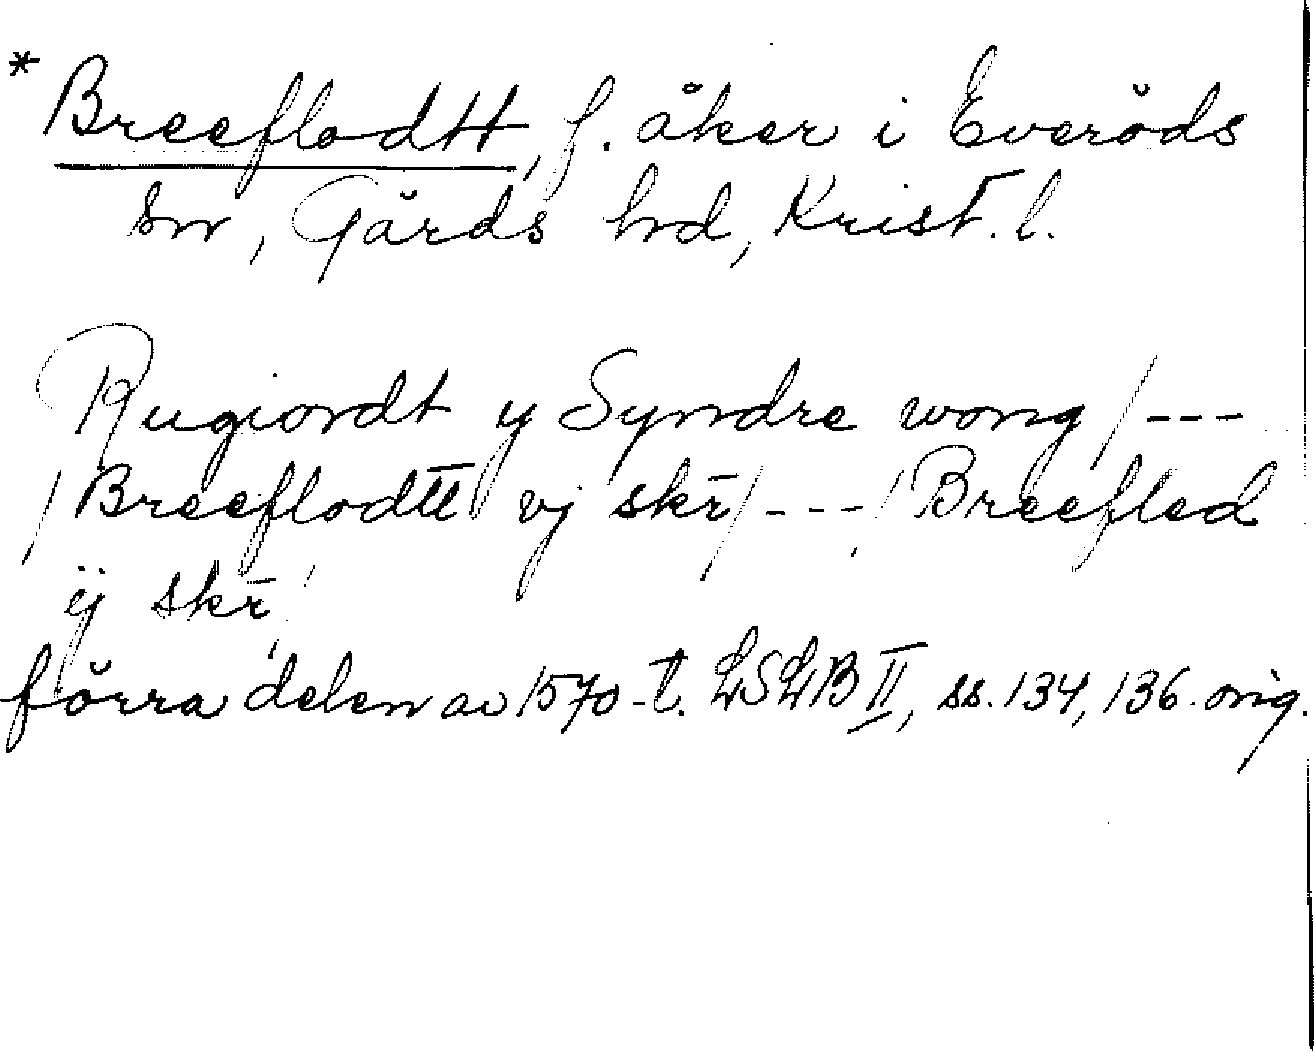 * Breeflodtt, f. åker i Everöds
sn, Gärds hd, Krist. l.
Rugiordt y Syndre wong /---
/ Breeflodtt vj skr̄ /---/ Breefled
ÿ skr̄ /
förra delen av 1570-t. LSLB II, ss. 134, 136. orig.